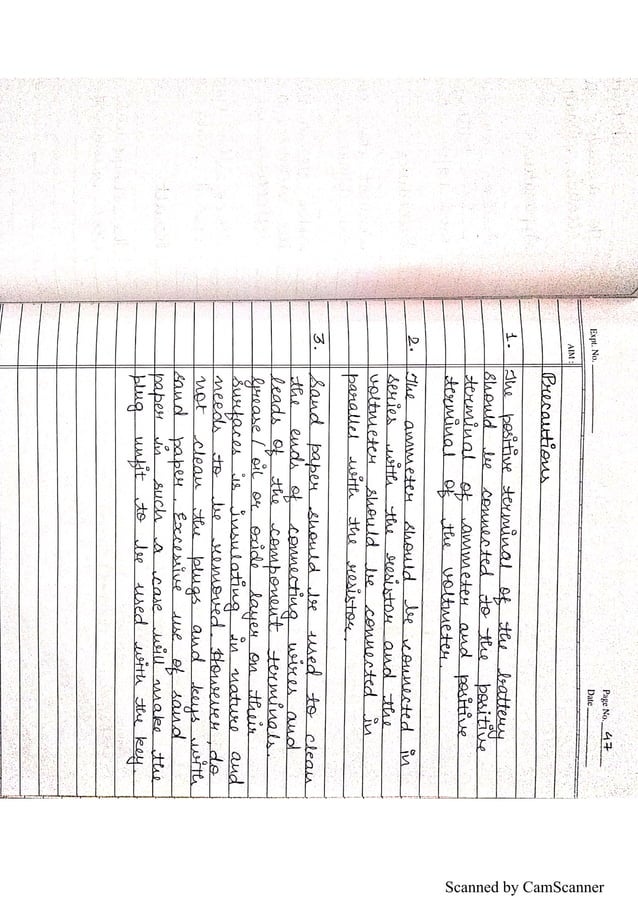 Expt. No.
Page No. 47
Date
AIM :
Precautions
1. The positive terminal of the battery
should be connected to the positive
terminal of ammeter and positive
terminal of the voltmeter.
2. The ammeter should be connected in
series with the resistor and the
voltmeter should be connected in
parallel with the resistor.
3. Sand paper should be used to clean
the ends of connecting wires and
leads of the component terminals.
Grease/oil or oxide layer on their
surfaces is insulating in nature and
needs to be removed. However, do
not clean the plugs and keys with
sand paper. Excessive use of sand
paper in such a case will make the
plug unfit to be used with the key.
Scanned by CamScanner